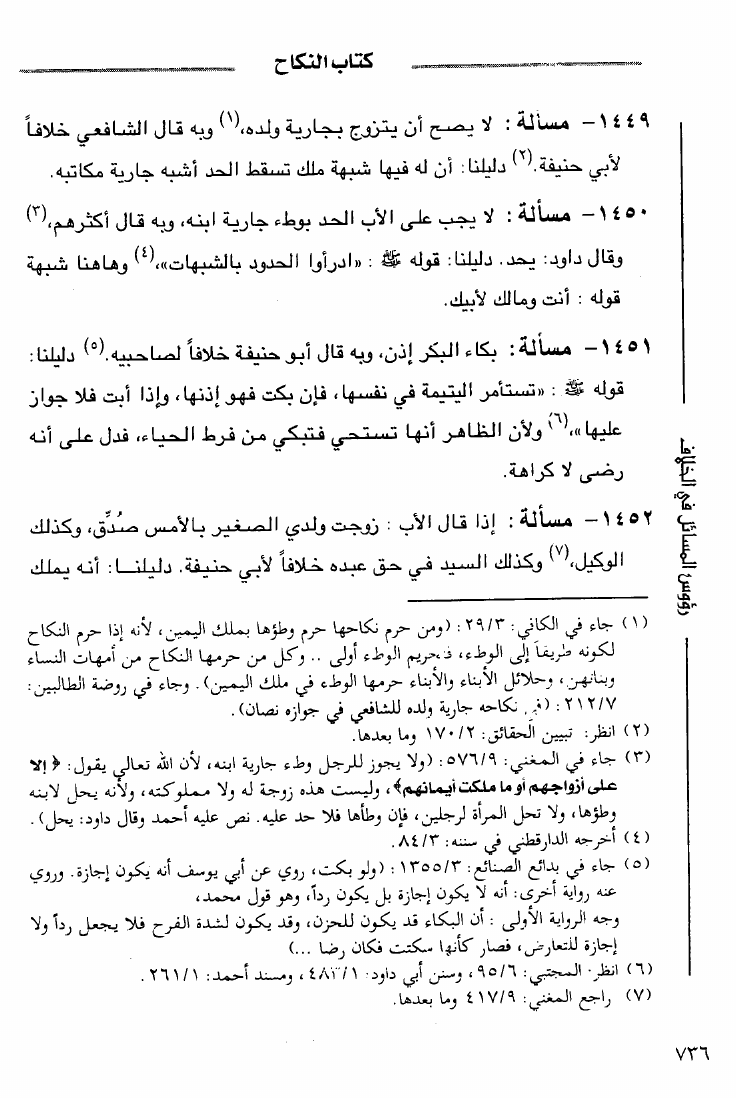 كتاب النكاح
١٤٤٩- مسألة : لا يصح أن يتزوج بجارية ولده،(١) وبه قال الشافعي خلافاً
لأبي حنيفة.(٢) دليلنا: أن له فيها شبهة ملك تسقط الحد أشبه جارية مكاتبه.
١٤٥٠- مسألة : لا يجب على الأب الحد بوطء جارية ابنه، وبه قال أكثرهم،(٣)
وقال داود: يحد. دليلنا: قوله ﷺ : «ادرأوا الحدود بالشبهات»،(٤) وهاهنا شبهة
قوله : أنت ومالك لأبيك.
١٤٥١- مسألة : بكاء البكر إذن، وبه قال أبو حنيفة خلافاً لصاحبيه.(٥) دليلنا:
قوله ﷺ : «تستأمر اليتيمة في نفسها، فإن بكت فهو إذنها، وإذا أبت فلا جواز
عليها»،(٦) ولأن الظاهر أنها تستحي فتبكي من فرط الحياء، فدل على أنه
رضى لا كراهة.
١٤٥٢- مسألة : إذا قال الأب : زوجت ولدي الصغير بالأمس صُدِّق، وكذلك
الوكيل،(٧) وكذلك السيد في حق عبده خلافاً لأبي حنيفة. دليلنا: أنه يملك
رؤوس المسائل في الخلاف
(١) جاء في الكافي: ٢٩/٣: (ومن حرم نكاحها حرم وطؤها بملك اليمين، لأنه إذا حرم النكاح
لكونه طريقاً إلى الوطء، فتحريم الوطء أولى .. وكل من حرمها النكاح من أمهات النساء
وبناتهن، وحلائل الأبناء والأبناء حرمها الوطء في ملك اليمين). وجاء في روضة الطالبين:
٢١٢/٧: (في نكاحه جارية ولده للشافعي في جوازه نصان).
(٢) انظر: تبيين الحقائق: ١٧٠/٢ وما بعدها.
(٣) جاء في المغني: ٥٧٦/٩: (ولا يجوز للرجل وطء جارية ابنه، لأن الله تعالى يقول: ﴿ إلا
على أزواجهم أو ما ملكت أيمانهم﴾، وليست هذه زوجة له ولا مملوكته، ولأنه يحل لابنه
وطؤها، ولا تحل المرأة لرجلين، فإن وطأها فلا حد عليه. نص عليه أحمد وقال داود: يحل).
(٤) أخرجه الدارقطني في سننه: ٨٤/٣.
(٥) جاء في بدائع الصنائع: ١٣٥٥/٣: (ولو بكت، روي عن أبي يوسف أنه يكون إجازة. وروي
عنه رواية أخرى: أنه لا يكون إجازة بل يكون رداً، وهو قول محمد،
وجه الرواية الأولى : أن البكاء قد يكون للحزن، وقد يكون لشدة الفرح فلا يجعل رداً ولا
إجازة للتعارض، فصار كأنها سكتت فكان رضا ...)
(٦) انظر: المجتبى: ٩٥/٦، وسنن أبي داود: ٤٨٣/١، ومسند أحمد: ٢٦١/١.
(٧) راجع المغني: ٤١٧/٩ وما بعدها.
٧٣٦